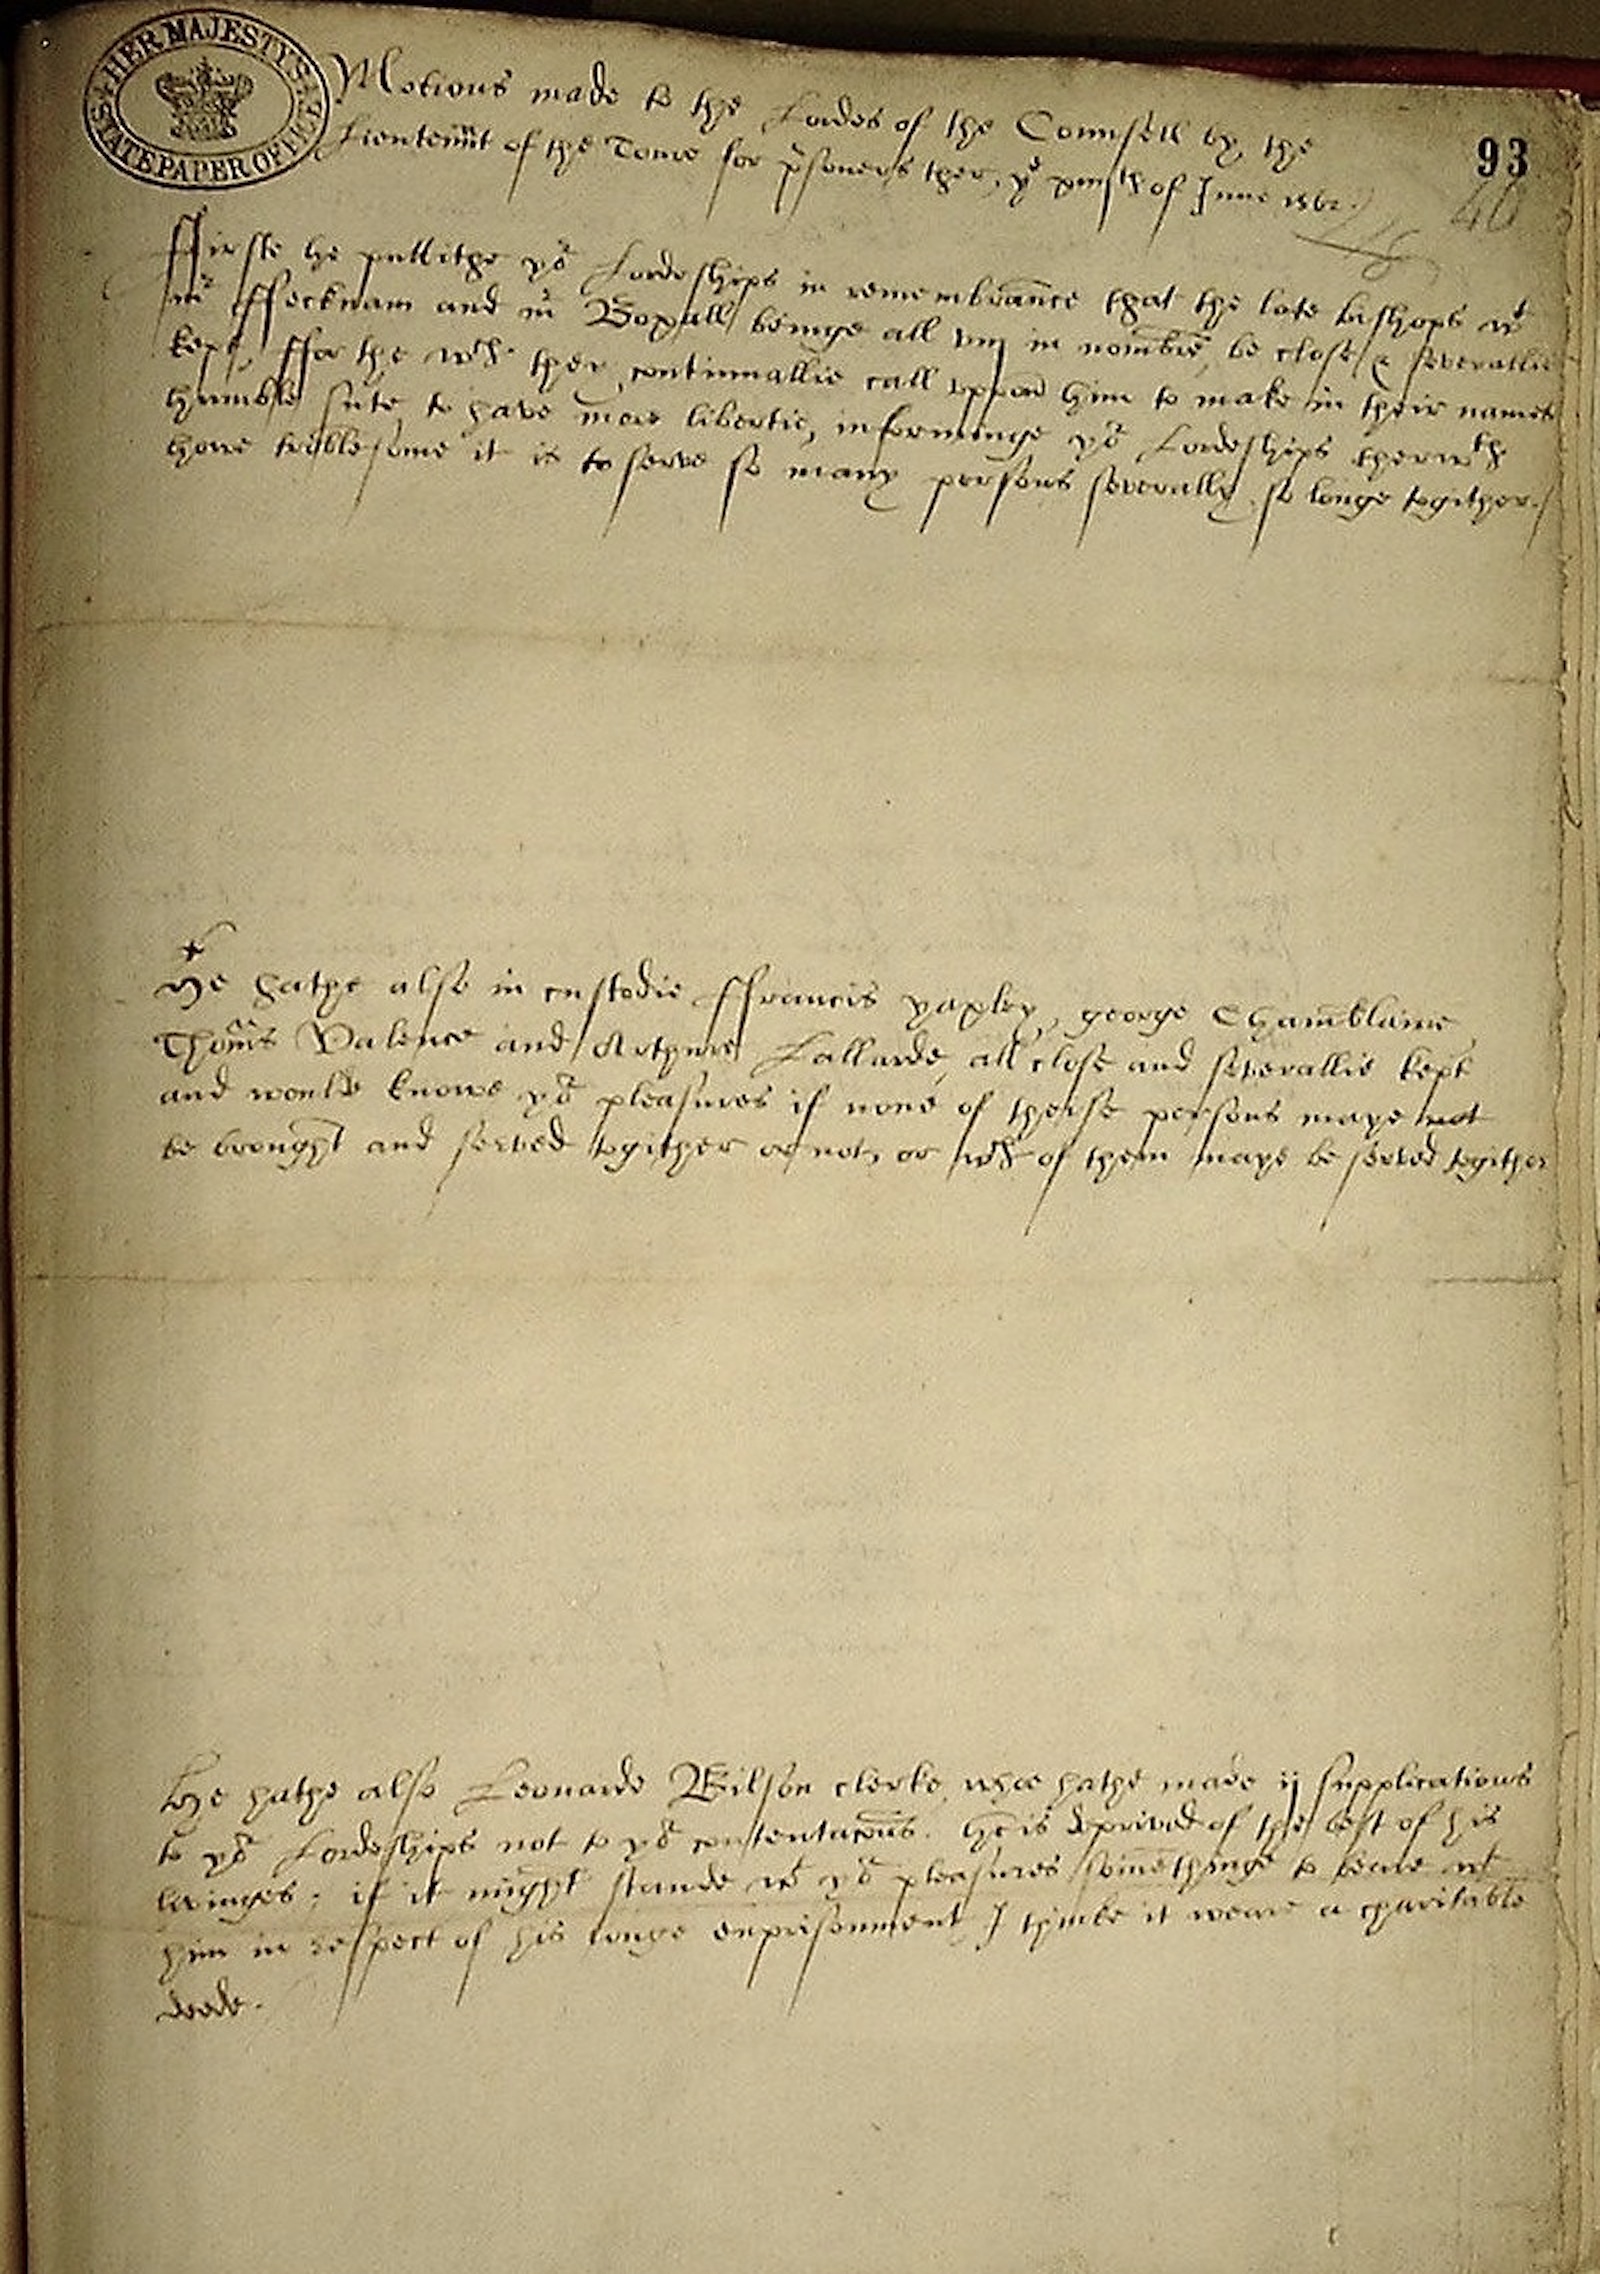 HER MAJESTY'S STATE PAPER OFFICE
93
40
Motions made to the Lordes of the Counsell by the
Lieutennt of the Towre for prsoners ther, ye of June 1562.
Ffirste he puttithe yor Lordeships in remembraunce that the late bishops wt
mr Ffecknam and mr Boxall beinge all viij in nombre, be close & severallie
kept, Ffor the wch they continuallie call uppon him to make in their names
humble sute to have more libertie, informinge yor Lordeships therwth
howe troblesome it is to serve so many persons severally so longe togither.
He hathe also in custodie Ffrancis Yaxley, George Chamblaine
Thoms Valence and Arthure Lallarde, all close and severallie kept
and woulde knowe yor pleasures if none of theise persons maye not
be brought and served togither or not, or wch of them maye be served togither
He hathe also Leonarde Wilson clerke, who hathe made ij supplications
to yor Lordeships not to yor contentacons. He is deprived of the best of his
livinges; if it might stande wt yor pleasures somethinge to beare wt
him in respect of his longe enprisonment I thinke it weare a charitable
deede.